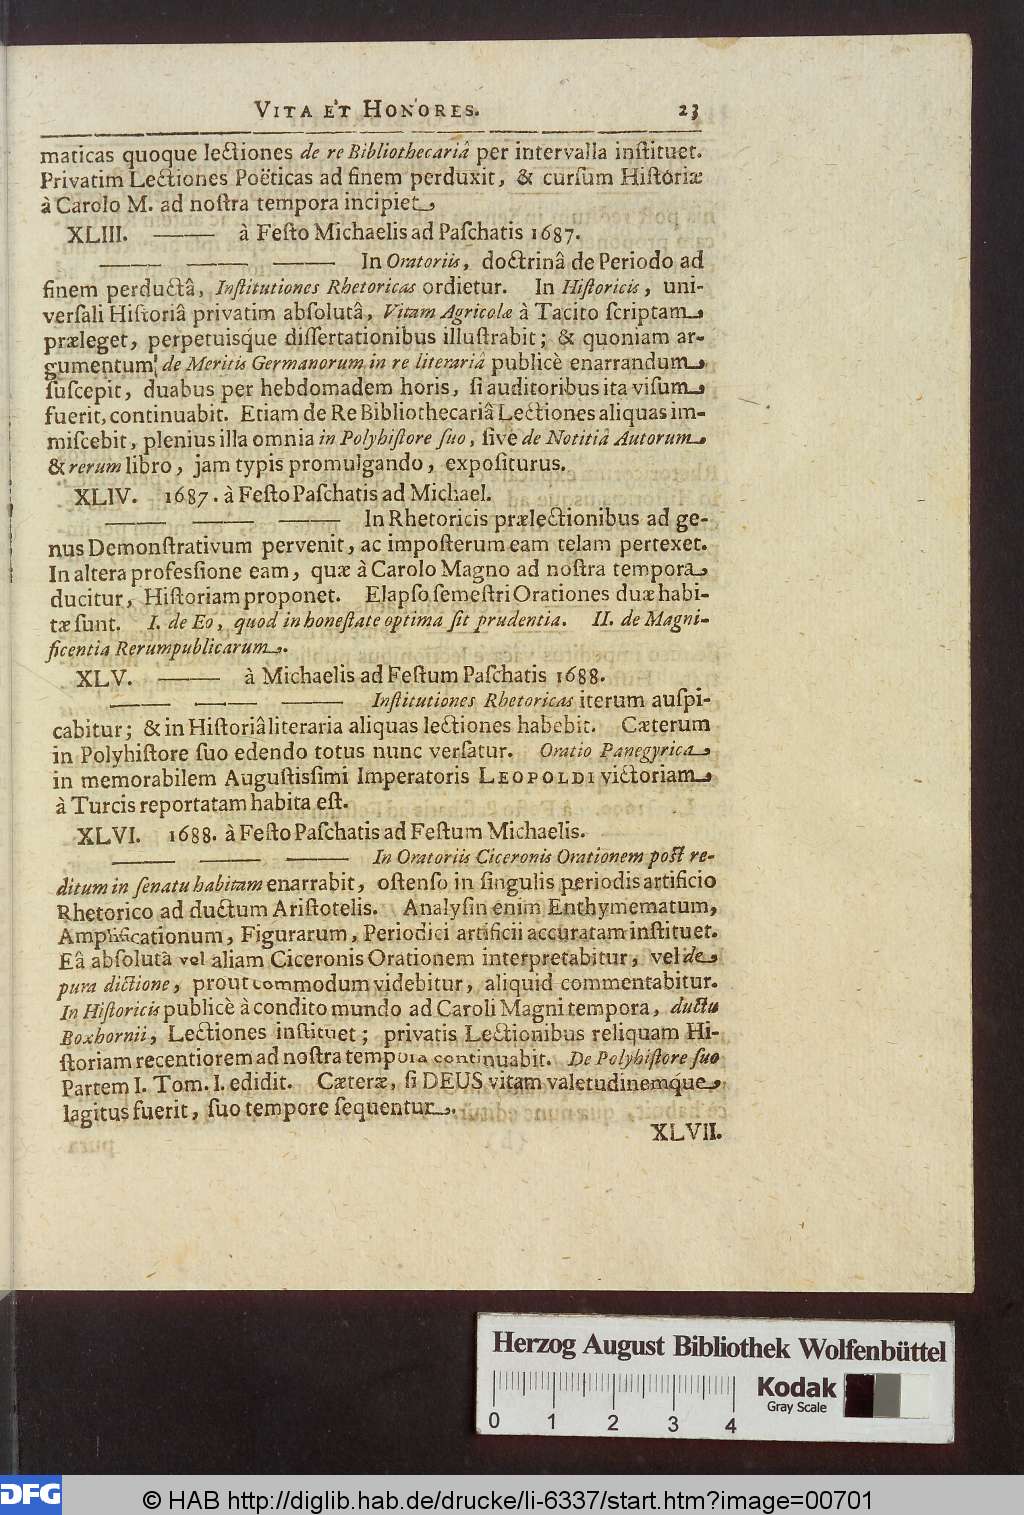 VITA ET HONORES. 23
maticas quoque lectiones de re Bibliothecariâ per intervalla inſtituet.
Privatim Lectiones Poëticas ad finem perduxit, & curſum Hiſtoriæ
à Carolo M. ad noſtra tempora incipiet.
XLIII. ——— à Feſto Michaelis ad Paſchatis 1687.
——— ——— ——— In Oratoriis, doctrinâ de Periodo ad
finem perductâ, Inſtitutiones Rhetoricas ordietur. In Hiſtoricis, uni-
verſali Hiſtoriâ privatim abſolutâ, Vitam Agricolæ à Tacito ſcriptam
præleget, perpetuisque diſſertationibus illuſtrabit; & quoniam ar-
gumentum de Meritis Germanorum in re literariâ publicè enarrandum
ſuſcepit, duabus per hebdomadem horis, ſi auditoribus ita viſum
fuerit, continuabit. Etiam de Re Bibliothecariâ Lectiones aliquas im-
miſcebit, plenius illa omnia in Polyhiſtore ſuo, ſive de Notitiâ Autorum
& rerum libro, jam typis promulgando, expoſiturus.
XLIV. 1687. à Feſto Paſchatis ad Michael.
——— ——— ——— In Rhetoricis prælectionibus ad ge-
nus Demonſtrativum pervenit, ac impoſterum eam telam pertexet.
In altera profeſſione eam, quæ à Carolo Magno ad noſtra tempora
ducitur, Hiſtoriam proponet. Elapſo ſemeſtri Orationes duæ habi-
tæ ſunt. I. de Eo, quod in honeſtate optima ſit prudentia. II. de Magni-
ficentia Rerumpublicarum.
XLV. ——— à Michaelis ad Feſtum Paſchatis 1688.
——— ——— ——— Inſtitutiones Rhetoricas iterum auſpi-
cabitur; & in Hiſtoriâ literaria aliquas lectiones habebit. Cæterum
in Polyhiſtore ſuo edendo totus nunc verſatur. Oratio Panegyrica
in memorabilem Auguſtiſſimi Imperatoris LEOPOLDI victoriam
à Turcis reportatam habita eſt.
XLVI. 1688. à Feſto Paſchatis ad Feſtum Michaelis.
——— ——— ——— In Oratoriis Ciceronis Orationem poſt re-
ditum in ſenatu habitam enarrabit, oſtenſo in ſingulis periodis artificio
Rhetorico ad ductum Ariſtotelis. Analyſin enim Enthymematum,
Amplificationum, Figurarum, Periodici artificii accuratam inſtituet.
Eâ abſolutâ vel aliam Ciceronis Orationem interpretabitur, vel de
pura dictione, prout commodum videbitur, aliquid commentabitur.
In Hiſtoricis publicè à condito mundo ad Caroli Magni tempora, ductu
Boxhornii, Lectiones inſtituet; privatis Lectionibus reliquam Hi-
ſtoriam recentiorem ad noſtra tempora continuabit. De Polyhiſtore ſuo
Partem I. Tom. I. edidit. Cæteræ, ſi DEUS vitam valetudinemque
lagitus fuerit, ſuo tempore ſequentur.
XLVII.
Herzog August Bibliothek Wolfenbüttel
Kodak
Gray Scale
0 1 2 3 4
DFG
© HAB http://diglib.hab.de/drucke/li-6337/start.htm?image=00701